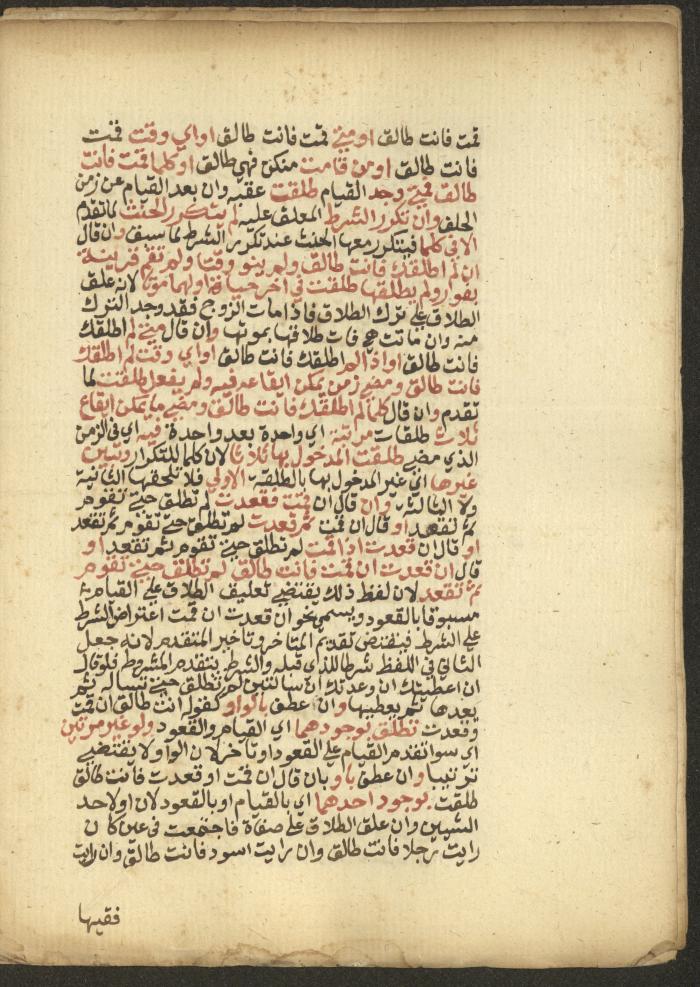 قمت فانت طالق او متى قمت فانت طالق او اي وقت قمت
فانت طالق او من قامت منكن فهي طالق او كلما قمت فانت
طالق فمتى وجد القيام طلقت عقبه وان بعد القيام عن زمن
الحلف وان تكرر الشرط المعلق عليه لم يتكرر الحنث لما تقدم
الا في كلما فيتكرر معها الحنث عند تكرر الشرط لما سبق وان قال
ان لم اطلقك فانت طالق ولم ينو وقتا ولم تقم قرينة
بفور ولم يطلقها طلقت في اخر حياة اولهما موتا لانه علق
الطلاق على ترك الطلاق فاذا مات الزوج فقد وجد الترك
منه وان ماتت هي فات طلاقها بموتها وان قال متى لم اطلقك
فانت طالق او اذا لم اطلقك فانت طالق او اي وقت لم اطلقك
فانت طالق ومضى زمن يمكن ايقاعه فيه ولم يفعل طلقت لما
تقدم وان قال كلما لم اطلقك فانت طالق ومضى ما يمكن ايقاع
ثلاث طلقات مرتبة اي واحدة بعد واحدة فيه اي في الزمن
الذي مضى طلقت المدخول بها ثلاثا لان كلما للتكرار وتبين
غيرها اي غير المدخول بها بالطلقة الاولى فلا تلحقها الثانية
ولا الثالثة وان قال ان قمت فقعدت لم تطلق حتى تقوم
ثم تقعد او قال ان قمت ثم قعدت لم تطلق حتى تقوم ثم تقعد
او قال ان قعدت اذا قمت لم تطلق حتى تقوم ثم تقعد او
قال ان قعدت ان قمت فانت طالق لم تطلق حتى تقوم
ثم تقعد لان لفظ ذلك يقتضي تعليق الطلاق على القيام
مسبوقا بالقعود ويسمى نحو ان قعدت ان قمت اعتراض الشرط
على الشرط فيقتضي تقديم المتاخر وتاخير المتقدم لانه جعل
الثاني في اللفظ شرطا للذي قبله والشرط يتقدم المشروط فلو قال
ان اعطيتك ان وعدتك ان سالتني لم تطلق حتى تساله ثم
يعدها ثم يعطيها وان عطف بالواو كقوله انت طالق ان قمت
وقعدت تطلق بوجودهما اي القيام والقعود ولو غير مرتين
اي سوا تقدم القيام على القعود او تاخر لان الواو لا يقتضي
ترتيبا وان عطف باو بان قال ان قمت او قعدت فانت طالق
طلقت بوجود احدهما اي بالقيام او بالقعود لان او لاحد
الشيين وان علق الطلاق على صفات فاجتمعت في عين كان
رايت رجلا فانت طالق وان رايت اسود فانت طالق وان رايت
فقيها